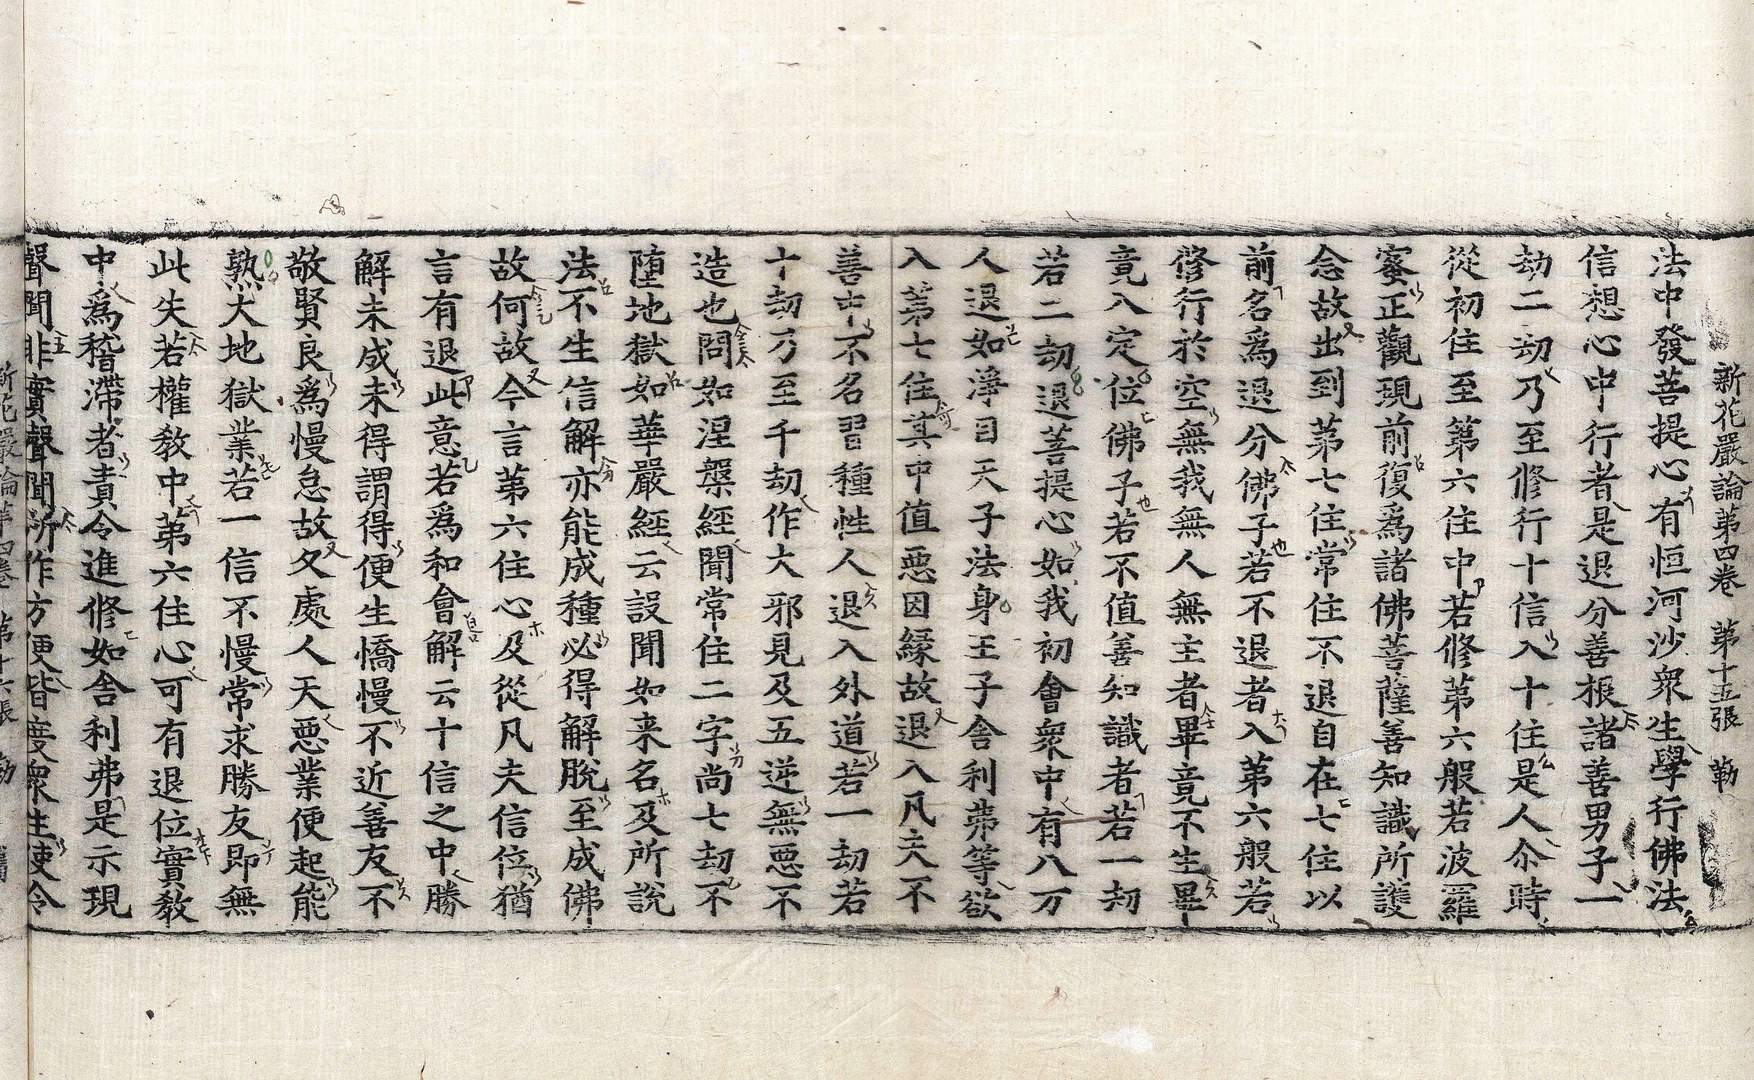 新花嚴論第四卷　第十五張　勒
法中發菩提心有恒河沙衆生學行佛法
信想心中行者是退分善根諸善男子一
劫二劫乃至修行十信入十住是人尒時
從初住至第六住中若修第六般若波羅
蜜正觀現前復爲諸佛菩薩善知識所護
念故出到第七住常住不退自在七住以
前名爲退分佛子若不退者入第六般若
修行於空無我無人無主者畢竟不生畢
竟入定位佛子若不值善知識者若一劫
若二劫退菩提心如我初會衆中有八万
人退如淨目天子法身王子舍利弗等欲
入第七住其中值惡因緣故退入凡夫不
善中不名習種性人退入外道若一劫若
十劫乃至千劫作大邪見及五逆無惡不
造也問如涅槃經聞常住二字尚七劫不
堕地獄如華嚴經云設聞如来名及所說
法不生信解亦能成種必得解脫至成佛
故何故今言第六住心及從凡夫信位猶
言有退此意若爲和會解云十信之中勝
解未成未得謂得便生憍慢不近善友不
敬賢良爲慢怠故久處人天悪業便起能
熟大地獄業若一信不慢常求勝友即無
此失若權敎中第六住心可有退位實敎
中爲稽滯者責令進修如舍利弗是示現
聲聞非實聲聞所作方便皆度衆生使令